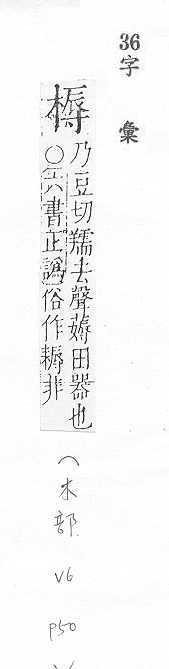 36字彙
槈
乃豆切羺去聲薅田器也
○六書正譌俗作耨非
（木部
V6
P50